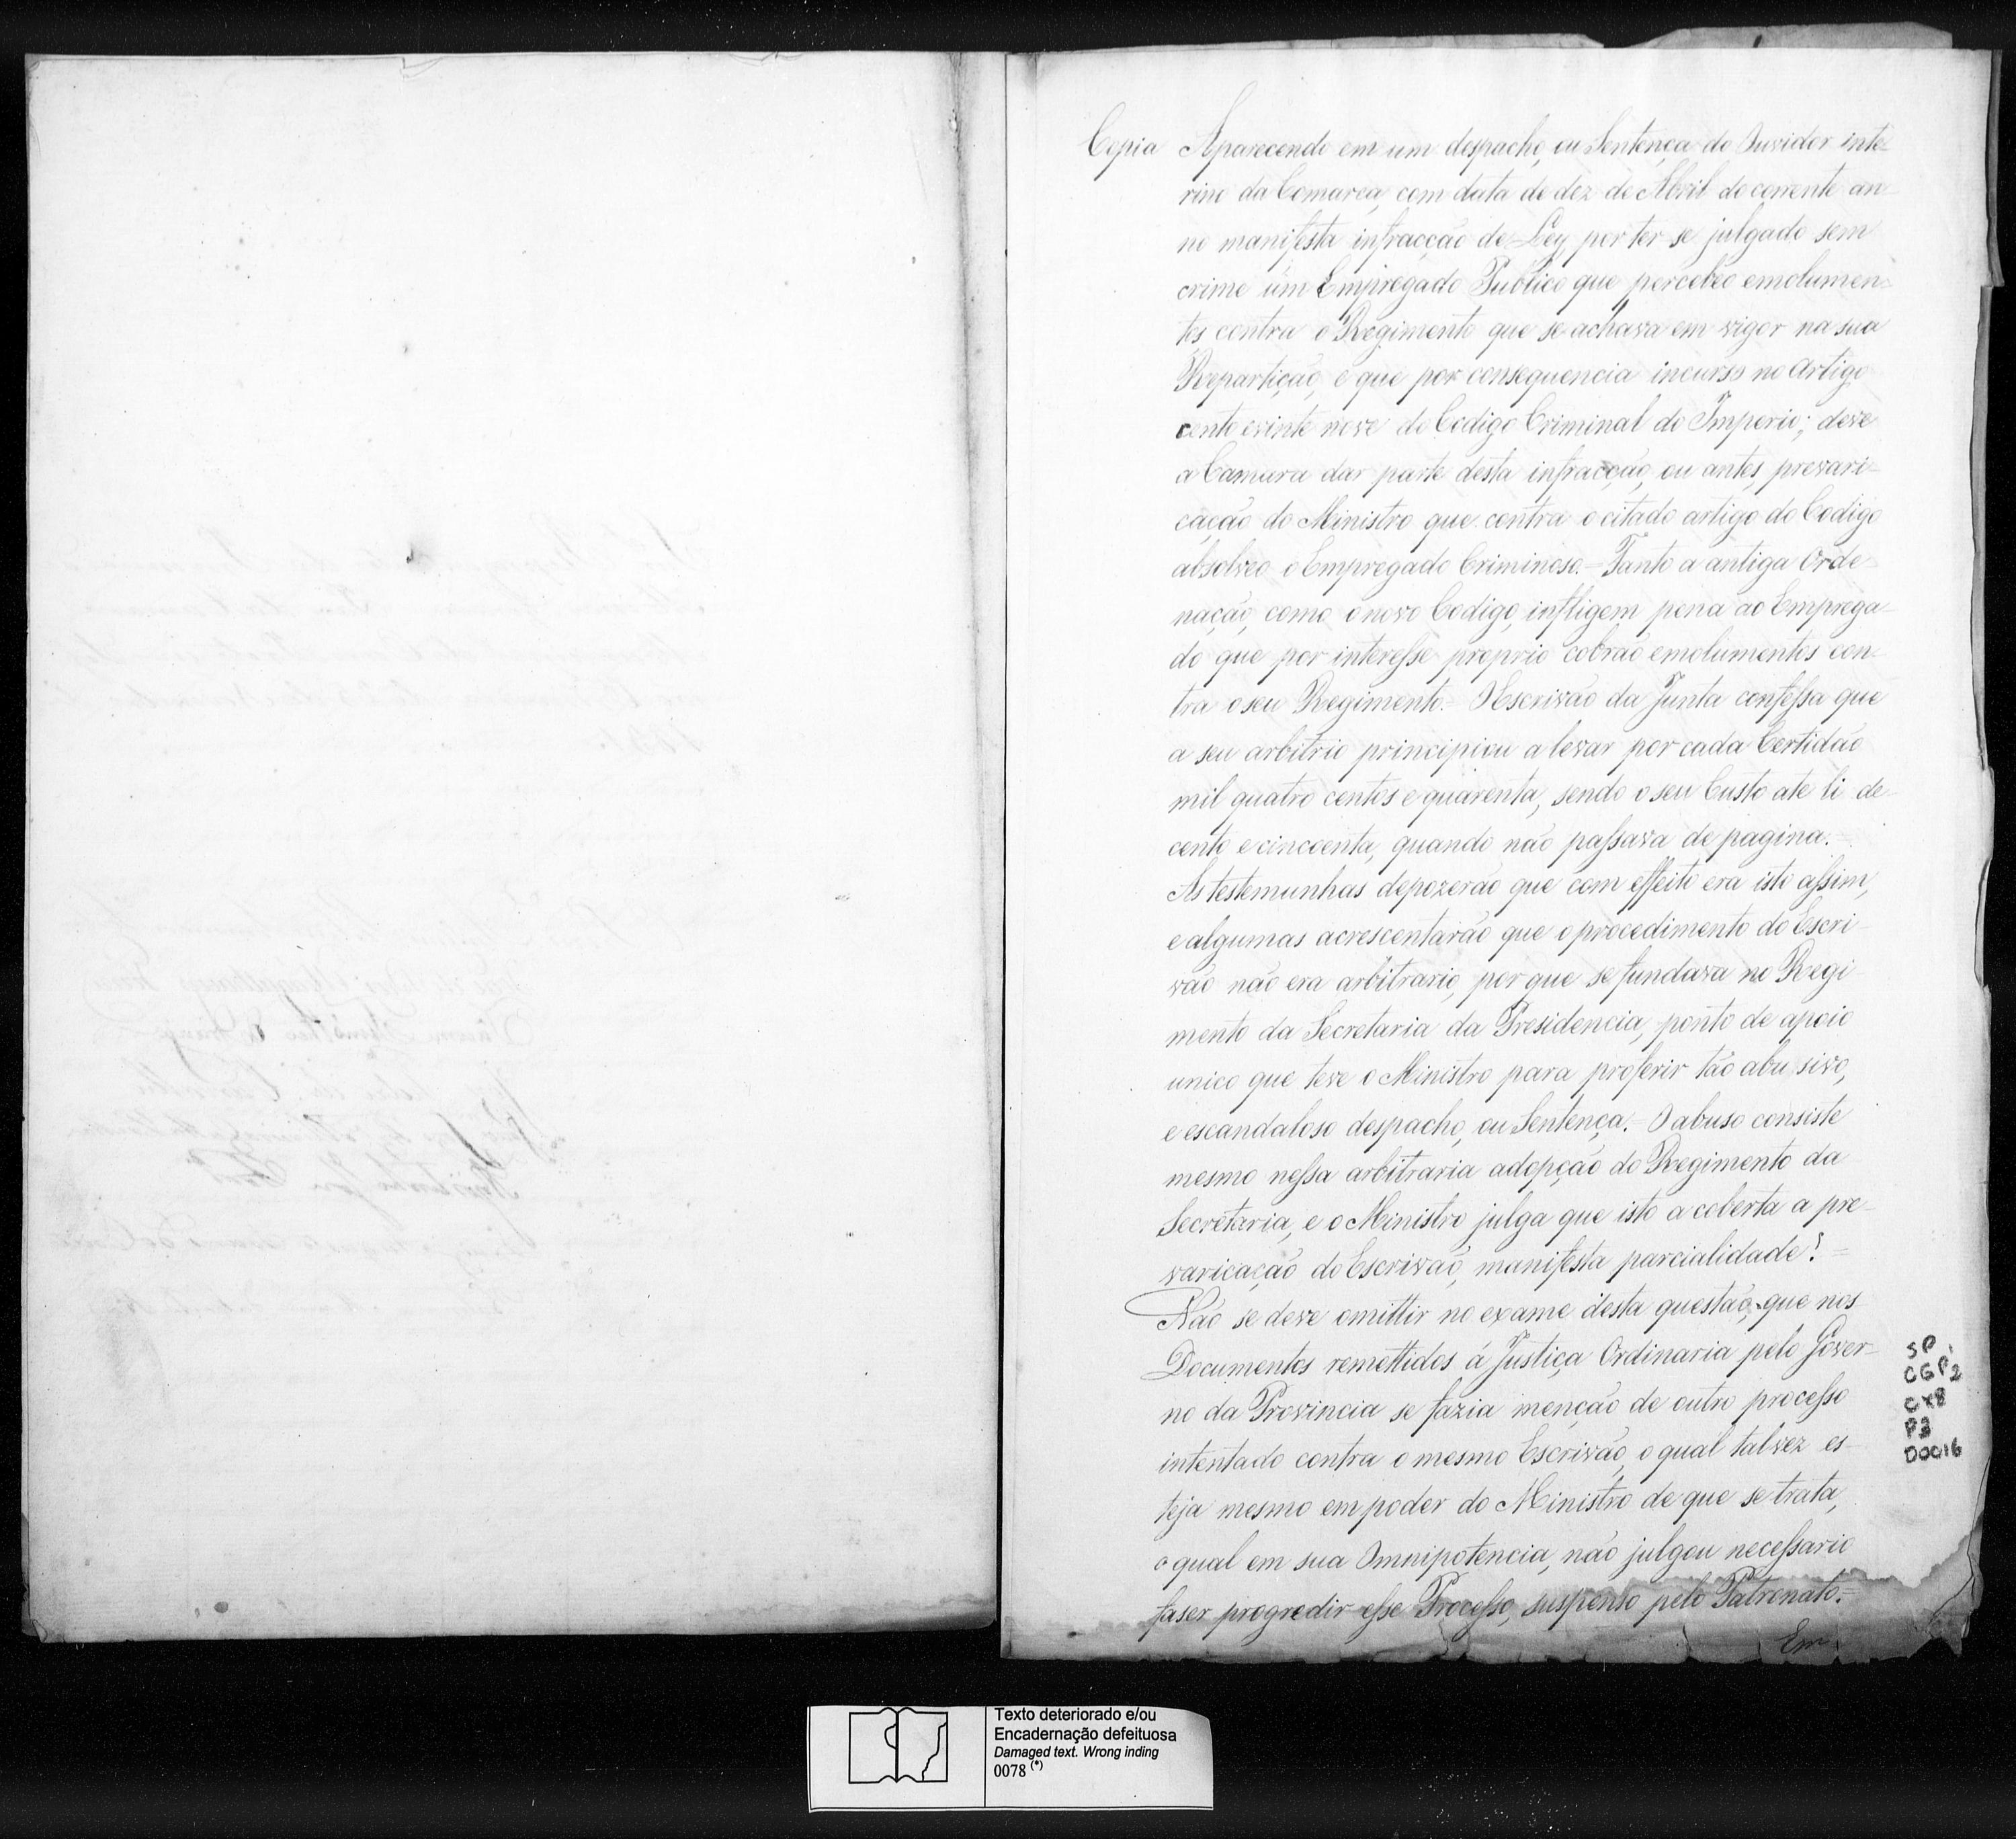 Copia Aparecendo em um despacho, ou Sentença do Ouvidor inte=
rino da Comarca, com data de dez de Abril do corrente an=
no manifesta infracção de Ley, por ter se julgado sem
crime um Empregado Publico que percebeo emolumen=
tos contra o Regimento que se achava em vigor na sua
Repartição, e que por consequencia incurso no Artigo
cento e vinte nove do Codigo Criminal do Imperio; deve
a Camara dar parte desta infracção, ou antes, prevari=
cação do Ministro que contra o citado artigo do Codigo
absolveo o Empregado Criminoso.= Tanto a antiga Orde=
nação, como o novo Codigo, infligem pena ao Emprega=
do que por interesse proprio cobrão emolumentos con=
tra o seu Regimento.= O Escrivão da Junta confessa que
a seu arbitrio principiou a levar por cada Certidão
mil quatro centos e quarenta, sendo o seu Custo ate li de
cento e cincoenta, quando não passava de pagina.=
As testemunhas depozerão que com effeito era isto assim,
e algumas acrescentarão que o procedimento do Escri=
vão não era arbitrario, por que se fundava no Regi=
mento da Secretaria da Presidencia, ponto de apoio
unico que teve o Ministro para proferir tão abusivo,
e escandaloso despacho, ou Sentença.= O abuso consiste
mesmo nessa arbitraria adopção do Regimento da
Secretaria, e o Ministro julga que isto acoberta a pre=
varicação do Escrivão, manifesta parcialidade!=
Não se deve omittir no exame desta questão, que nos
Documentos remettidos á Justiça Ordinaria pelo Gover=
no da Provincia se fazia menção de outro processo
intentado contra o mesmo Escrivão, o qual talvez es=
teja mesmo em poder do Ministro de que se trata,
o qual em sua Omnipotencia, não julgou necessario
faser progredir esse Processo, suspenso pelo Patronato.=
Em
SP
CGP2
CX8
P3
D0016
Texto deteriorado e/ou
Encadernação defeituosa
Damaged text. Wrong inding
0078 (*)